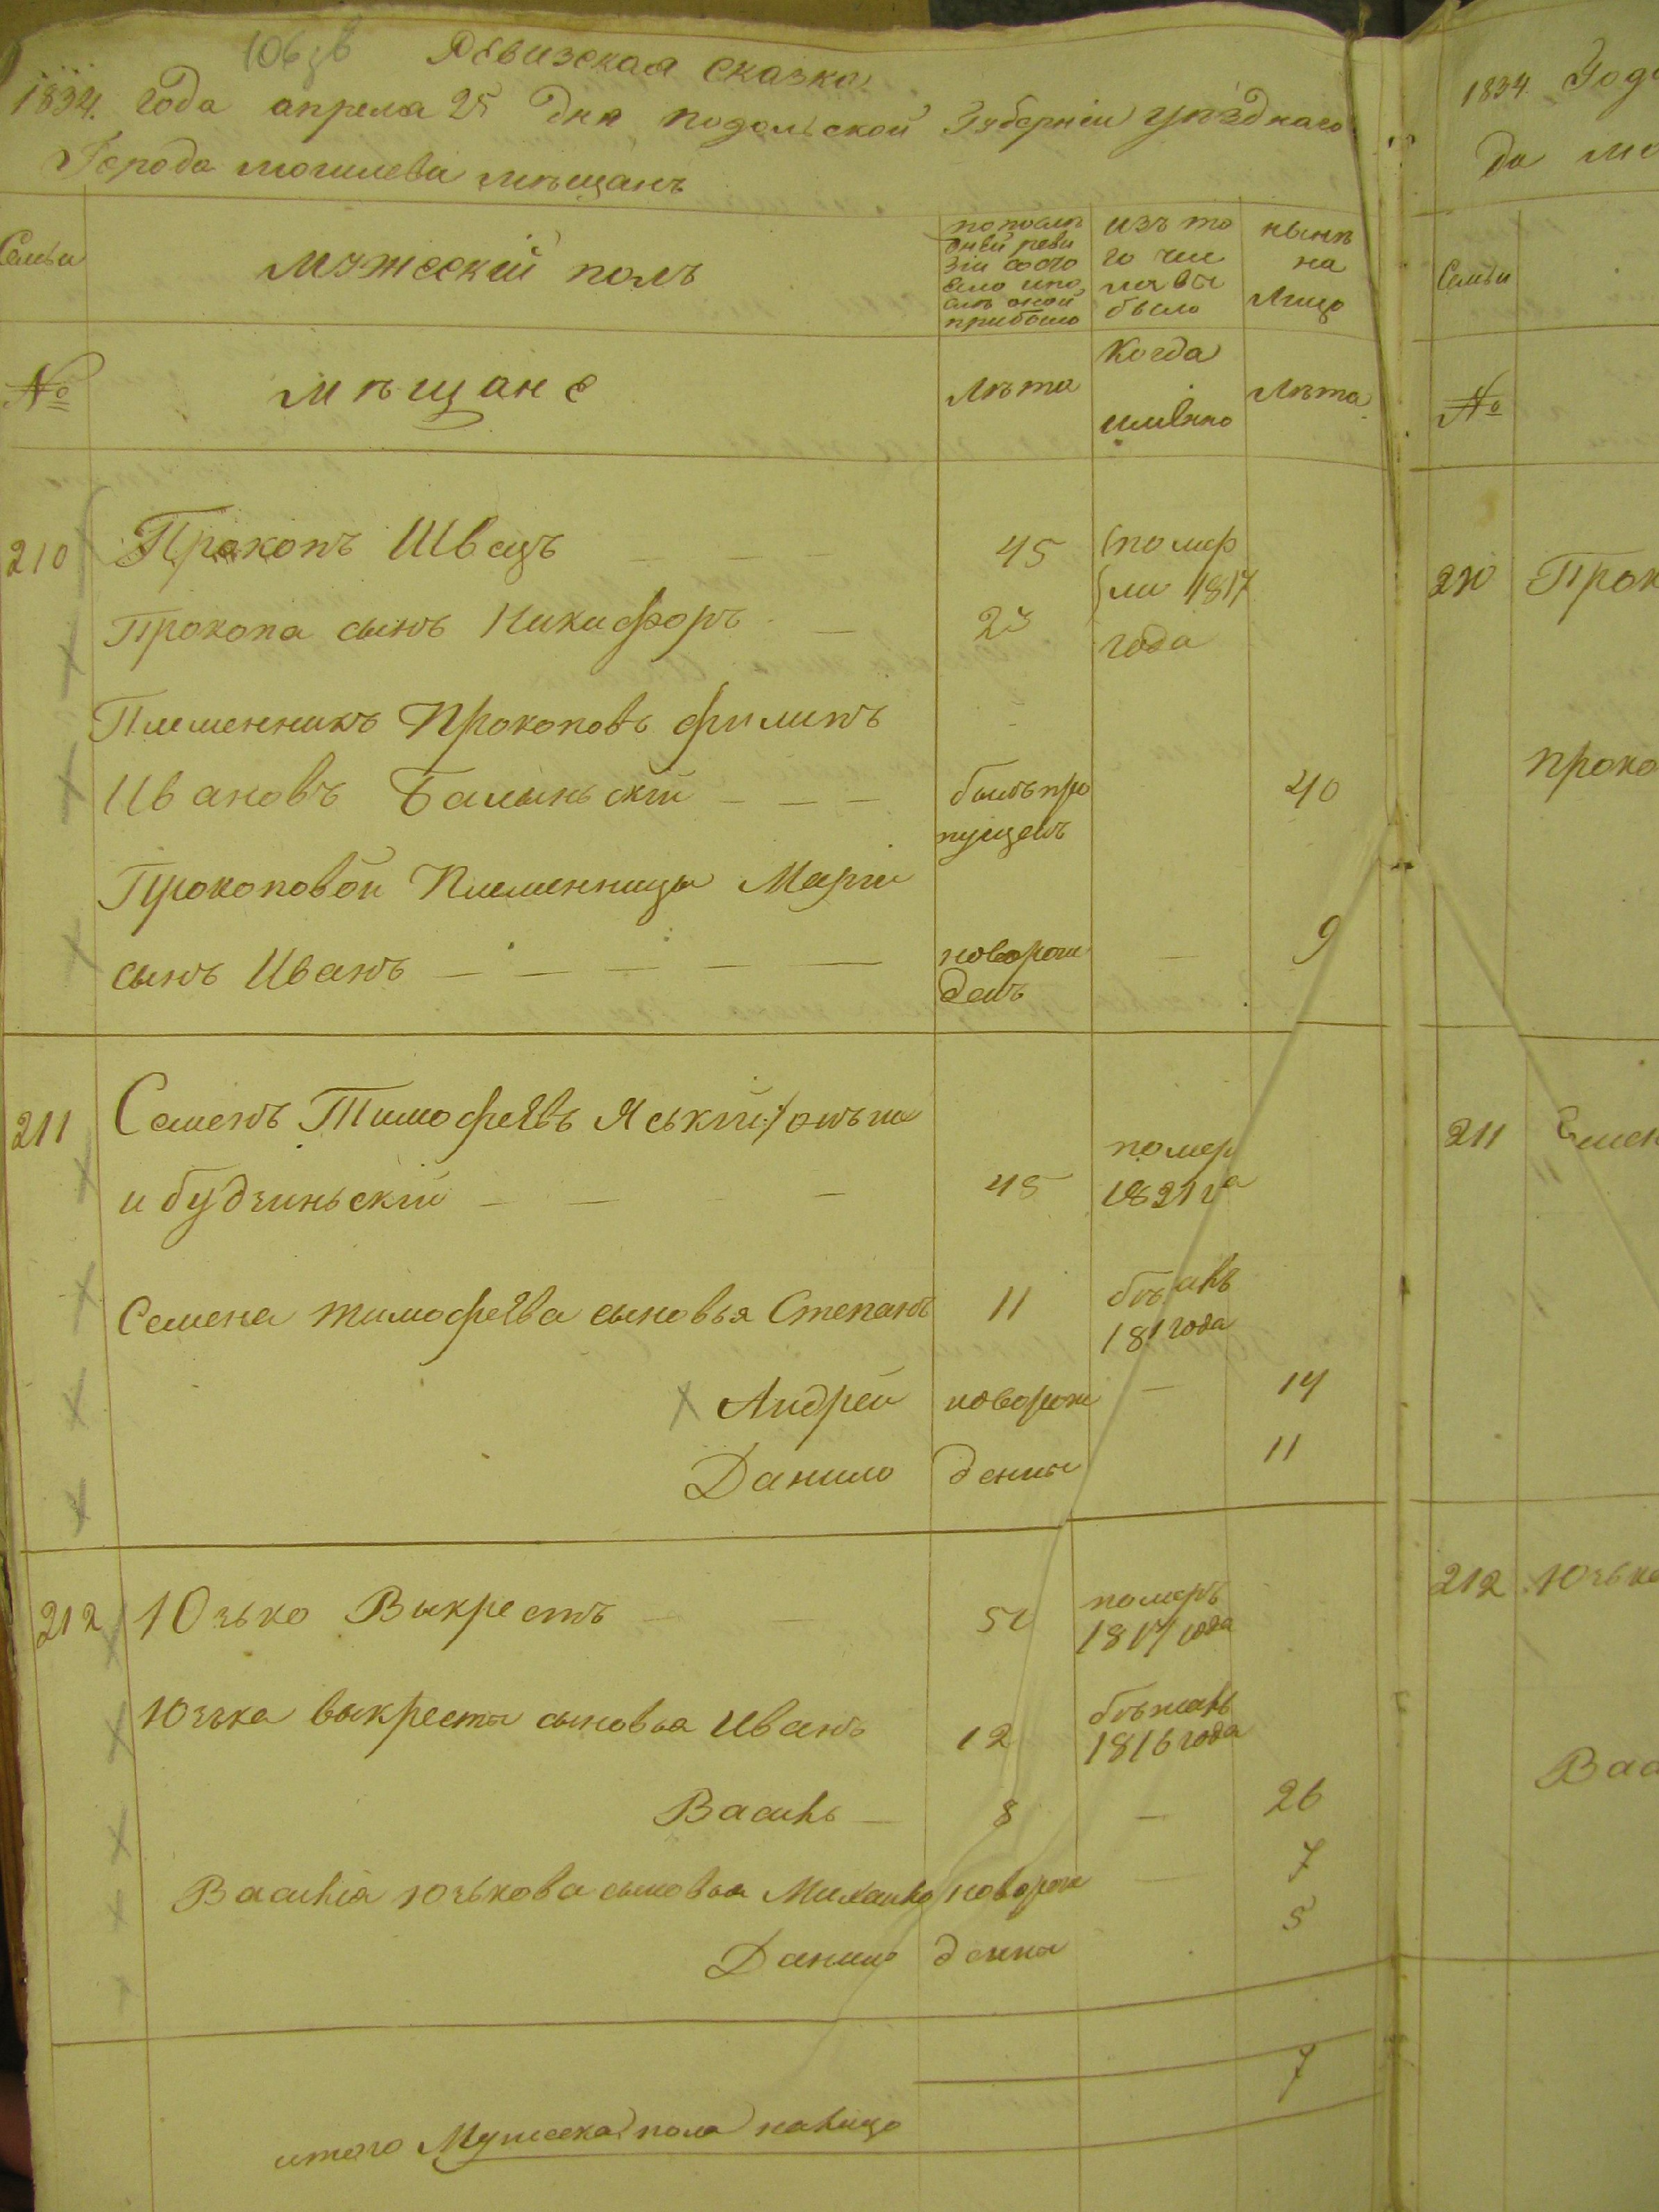 106 зв
Ревизская сказка
1834. года апреля 25 дня подольской Губерніи уѣзднаго
Города могилева мѣщанъ
Семьи
мужескій полъ
по послѣ
дней реви
зіи состо
яло и по
слѣ оной
прибыло
изъ то
го чис
ла вы
было
нынѣ
на
лицо
№
мѣщане
лѣта
Когда
имѣнно
лѣта
210 Прокопъ Швецъ 45 помер
ли 1817
года
Прокопа сынъ Никифоръ 23
Племенникъ Прокоповъ филипъ
Ивановъ Балыньскій былъ про 40
пущенъ
Прокоповой Племенницы Маріи
сынъ Иванъ новорож 9
денъ
211 Семенъ Тимофеевъ Яській
и будзиньскій 45 помер
1821 га
Семена тимофеева сыновья Степанъ 11
181 года
Андрей новорож 14
Данило денны 11
212 Юзько Выкрестъ померъ
1817 года
Юзька выкреста сыновья Иванъ 12 бѣжалъ
1816 года
Василь 8 26
Василія юзькова сыновья Михайло новорож 7
Данило денна 5
7
итого Мужеска пола налицо
1834 Года
да мо
Семьи
№
210 Прок
Проко
211 Семен
212 Юзька
Вас